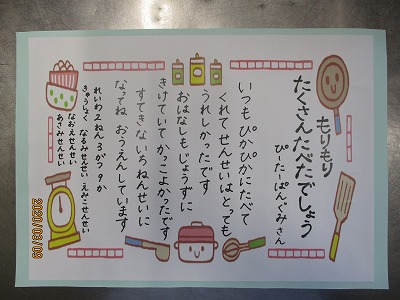 もりもり
たくさんたべたでしょう
ぴーたーぱんぐみさん
いつも ぴかぴかにたべて
くれて せんせいは とっても
うれしかったです
おはなしもじょうずに
きけていて かっこよかったです
すてきな いちねんせいに
なってね おうえんしています
れいわ2ねん3がつ9か
きゅうしょく なるみせんせい えみこせんせい
なおえせんせい
あさみせんせい
2020/03/09